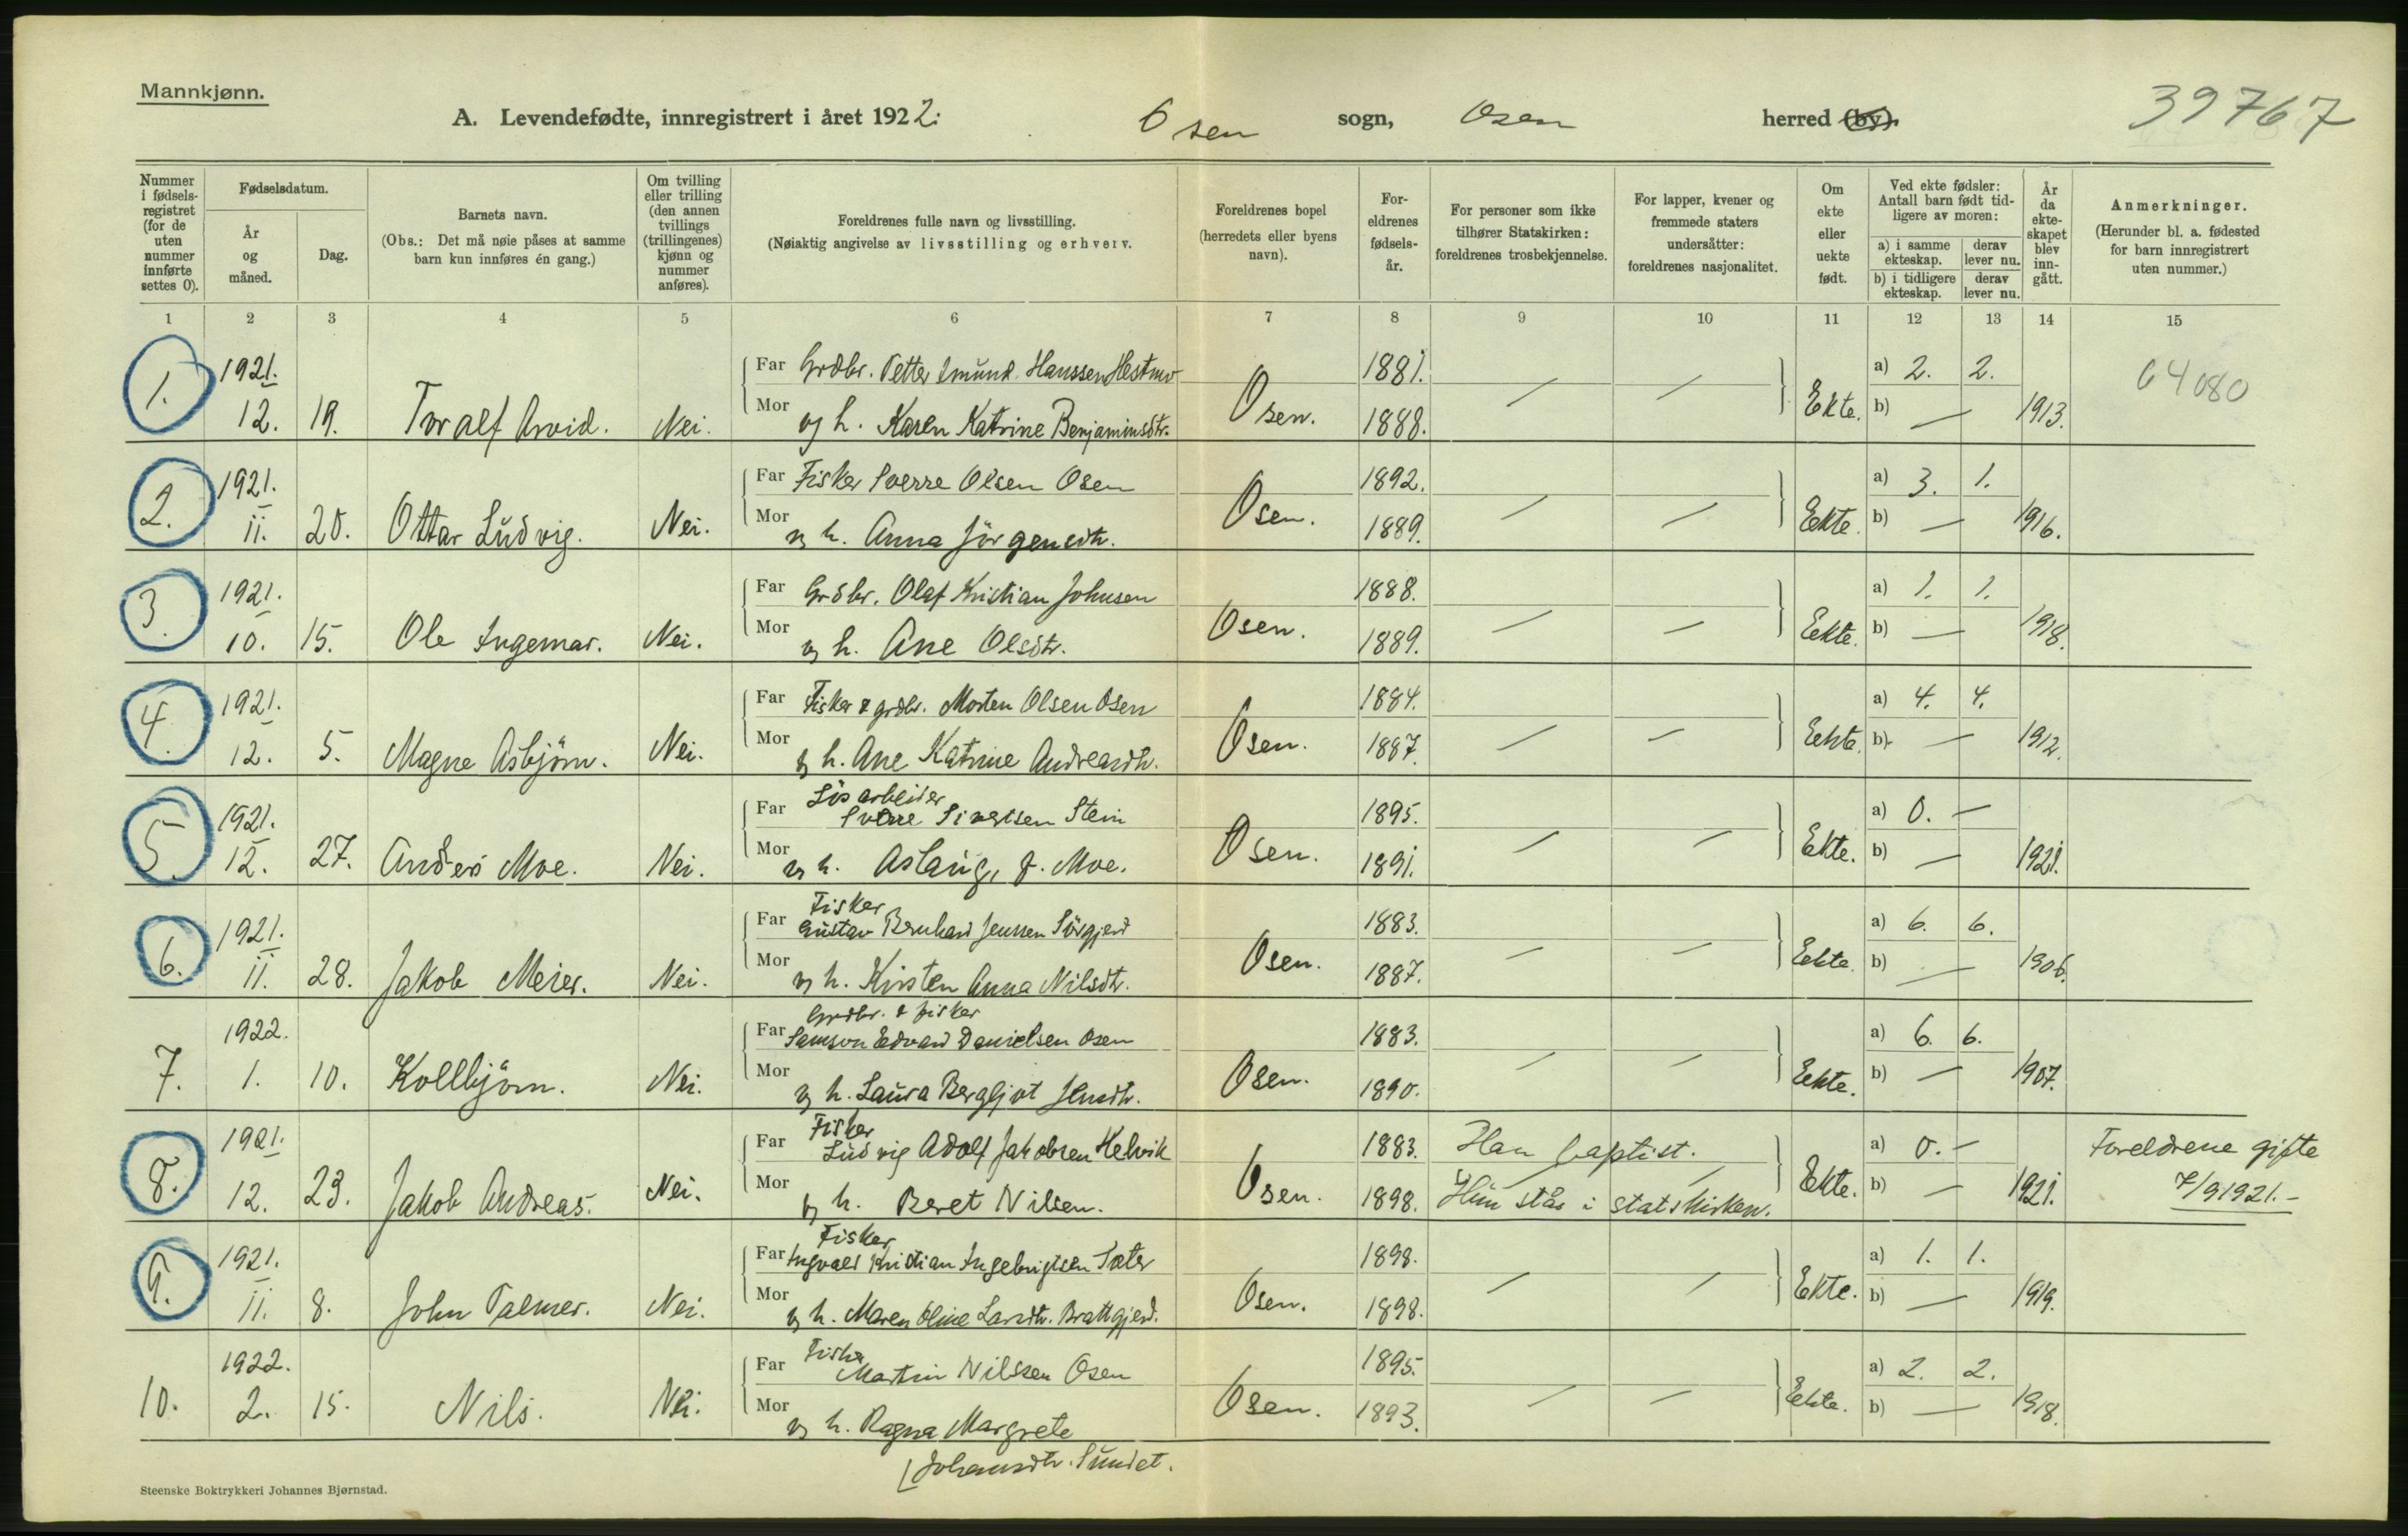 Mannkjønn.
A. Levendefødte, innregistrert i året 1922. Osen sogn, Osen herred (by). 39767
Nummer i fødselsregistret (for de uten nummer innførte settes 0).
Fødselsdatum.
År og måned.
Dag.
Barnets navn.
(Obs.: Det må nøie påses at samme barn kun innføres én gang.)
Om tvilling eller trilling (den annen tvillings (trillingenes) kjønn og nummer anføres).
Foreldrenes fulle navn og livsstilling.
(Nøiaktig angivelse av livsstilling og erhverv.
Foreldrenes bopel (herredets eller byens navn).
Foreldrenes fødselsår.
For personer som ikke tilhører Statskirken: foreldrenes trosbekjennelse.
For lapper, kvener og fremmede staters undersåtter: foreldrenes nasjonalitet.
Om ekte eller uekte født.
Ved ekte fødsler: Antall barn født tidligere av moren:
a) i samme ekteskap. derav lever nu.
b) i tidligere ekteskap. derav lever nu.
År da ekteskapet blev inngått.
Anmerkninger.
(Herunder bl. a. fødested for barn innregistrert uten nummer.)
1 2 3 4 5 6 7 8 9 10 11 12 13 14 15
1921. Far Grdbr. Petter Emund Hanssen Hestmo 1881. a) 2. 2. 64080
1. 12. 19. Toralf Arvid. Nei. Mor og h. Karen Katrine Benjaminsdtr. Osen. 1888. — — Ekte. b) — 1913.
1921. Far Fisker Sverre Olsen Osen 1892. a) 3. 1.
2. 11. 20. Ottar Ludvig. Nei. Mor og h. Anna Jörgensdtr. Osen. 1889. — — Eekte. b) — 1916.
1921. Far Grdbr. Olaf Kristian Johnsen 1888. a) 1. 1.
3. 10. 15. Ole Ingemar. Nei. Mor og h. Ane Olsdtr. Osen. 1889. — — Eekte. b) — 1918.
1921. Far Fisker & grdbr. Morten Olsen Osen 1884. a) 4. 4.
4. 12. 5. Magne Asbjörn. Nei. Mor og h. Ane Katrine Andreasdtr. Osen. 1887. — — Eekte. b) — 1912.
Lösarbeider
1921. Far Sverre Sivertsen Stein 1895. a) 0. —
5. 12. 27. Anders Moe. Nei. Mor og h. Aslaug, f. Moe. Osen. 1891. — — Ekte. b) — 1921.
Fisker
1921. Far Gustav Bernhard Jenssen Sörgjerd 1883. a) 6. 6.
6. 11. 28. Jakob Meier. Nei. Mor og h. Kirsten Anna Nilsdtr. Osen. 1887. — — Eekte. b) — 1906.
Grdbr. & fisker
1922. Far Samson Edvard Danielsen Osen 1883. a) 6. 6.
7. 1. 10. Kollbjörn. Nei. Mor og h. Laura Bergljot Jensdtr. Osen. 1890. — — Eekte. b) — 1907.
Fisker
1921. Far Ludvig Adolf Jakobsen Helvik 1883. Han baptist. a) 0. — Foreldrene gifte
8. 12. 23. Jakob Andreas. Nei. Mor og h. Beret Nilsen. Osen. 1898. Hun står i statskirken. Ekte. b) — 1921. 7/9 1921.—
Fisker
1921. Far Ingvald Kristian Ingebrigtsen Sæter 1898. a) 1. 1.
9. 11. 8. John Palmer. Nei. Mor og h. Maren Oline Larsdtr. Brattgjerd. Osen. 1898. — — Ekte. b) — 1919.
Fisker
1922. Far Martin Nilssen Osen 1895. a) 2. 2.
10. 2. 15. Nils. Nei. Mor og h. Ragna Margrete Osen. 1893. — — Eekte. b) — 1918.
Johansdtr. Sundet.
Steenske Boktrykkeri Johannes Bjørnstad.